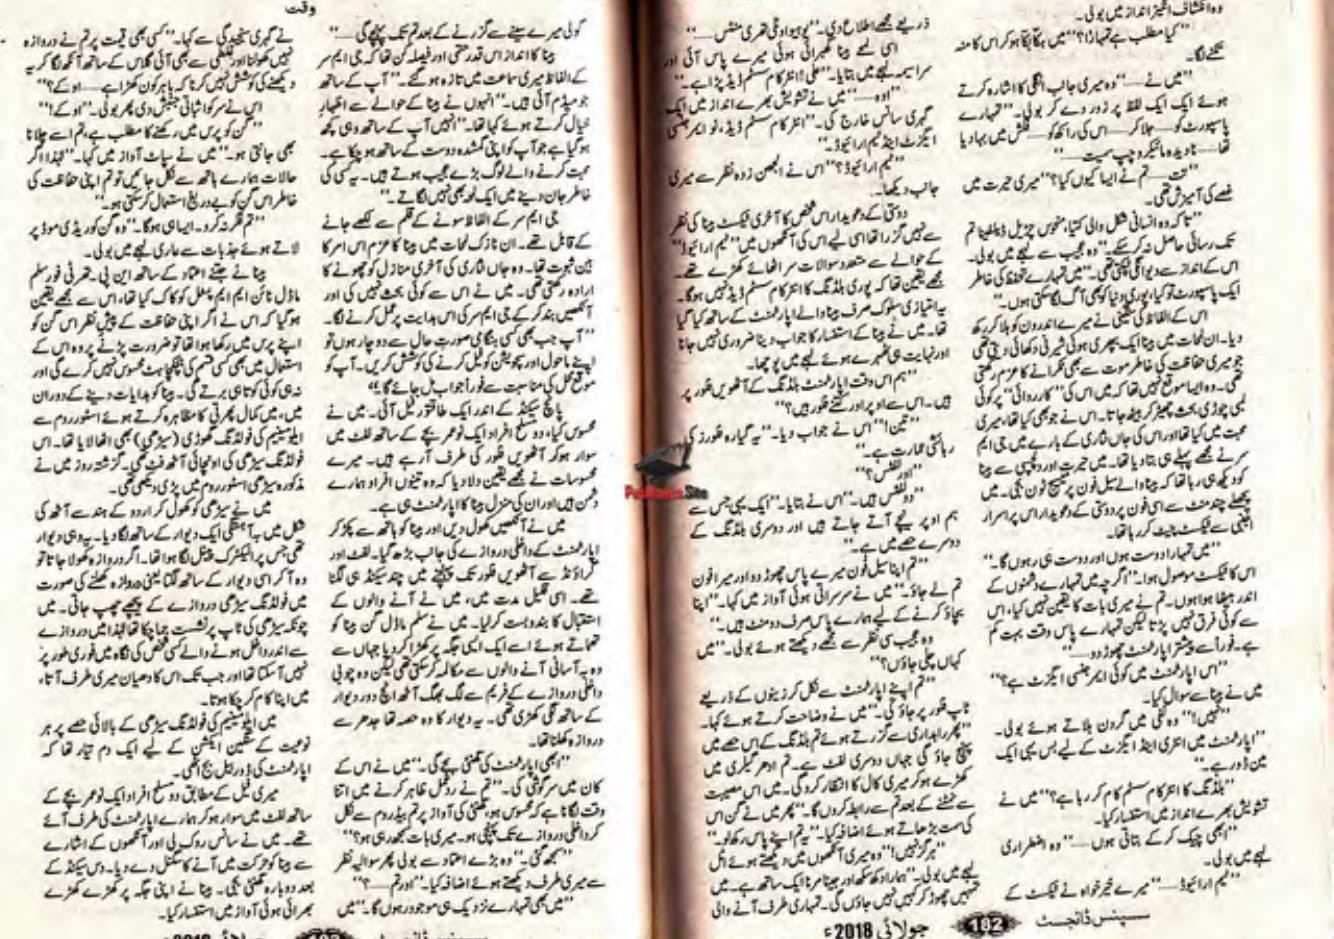 وہ انکشاف انگیز انداز میں بولی۔
"کیا مطلب ہے تمہارا؟" میں ہکا بکا ہو کر اس کا منہ
تکنے لگا۔
"میں نے ...... وہ میری جانب انگلی کا اشارہ کرتے
ہوئے ایک ایک لفظ پر زور دے کر بولی۔ "تمہارے
پاسپورٹ کو ...... جلا کر ...... اس کی راکھ کو ...... فلش میں بہا دیا
تھا ...... نادیدہ مائیکرو چپ سمیت ......"
"تت ...... تم نے ایسا کیوں کیا؟" میری حیرت میں
غصے کی آمیزش تھی۔
"تاکہ وہ انسانی شکل والی کتیا، منحوس چڑیل ڈیلفینا تم
تک رسائی حاصل نہ کر سکے۔" وہ عجیب سے لہجے میں بولی۔
اس کے انداز سے دیوانگی ٹپکتی تھی۔ "میں تمہارے تحفظ کی خاطر
ایک پاسپورٹ تو کیا، پوری دنیا کو بھی آگ لگا سکتی ہوں۔"
اس کے الفاظ کی سنگینی نے میرے اندرون کو ہلا کر رکھ
دیا۔ ان لمحات میں بینا ایک بپھری ہوئی شیرنی دکھائی دیتی تھی
جو میری حفاظت کی خاطر موت سے بھی ٹکرانے کا عزم رکھتی
تھی۔ وہ ایسا موقع نہیں تھا کہ میں اس کی "کارروائی" پر کوئی
لمبی چوڑی بحث چھیڑ کر بیٹھ جاتا۔ اس نے جو بھی کیا تھا، میری
محبت میں کیا تھا اور اس کی جاں نثاری کے بارے میں جی ایم
سر نے مجھے پہلے ہی بتا دیا تھا۔ میں حیرت اور دلچسپی سے بینا
کو دیکھ ہی رہا تھا کہ بینا والے سیل فون پر میسج ٹون بجی۔ میں
پچھلے چند منٹ سے اسی فون پر دوستی کے دعویدار اس پراسرار
اجنبی سے ٹیکسٹ چیٹ کر رہا تھا۔
"میں تمہارا دوست ہوں اور دوست ہی رہوں گا۔"
اس کا ٹیکسٹ موصول ہوا۔ "اگرچہ میں تمہارے دشمنوں کے
اندر بیٹھا ہوا ہوں۔ تم نے میری بات کا یقین نہیں کیا، اس
سے کوئی فرق نہیں پڑتا لیکن تمہارے پاس وقت بہت کم
ہے۔ فوراً سے پیشتر اپارٹمنٹ چھوڑ دو ......"
"اس اپارٹمنٹ میں کوئی ایمرجنسی ایگزٹ ہے؟"
میں نے بینا سے سوال کیا۔
"نہیں!" وہ نفی میں گردن ہلاتے ہوئے بولی۔
"اپارٹمنٹ میں انٹری اینڈ ایگزٹ کے لیے بس یہی ایک
مین ڈور ہے۔"
"بلڈنگ کا انٹرکام سسٹم کام کر رہا ہے؟" میں نے
تشویش بھرے انداز میں استفسار کیا۔
"ابھی چیک کر کے بتاتی ہوں ......" وہ اضطراری
لہجے میں بولی۔
"ٹیم ارائیوڈ ......" میرے خیر خواہ نے ٹیکسٹ کے
ذریعے مجھے اطلاع دی۔ "یو ہیو اونلی تھری منٹس ......"
اسی لمحے بینا گھبرائی ہوئی میرے پاس آئی اور
سراسیمہ لہجے میں بتایا۔ "علی! انٹرکام سسٹم ڈیڈ پڑا ہے۔"
"اوہ ......" میں نے تشویش بھرے انداز میں ایک
گہری سانس خارج کی۔ "انٹرکام سسٹم ڈیڈ، نو ایمرجنسی
ایگزٹ اینڈ ٹیم ارائیوڈ۔"
"ٹیم ارائیوڈ؟" اس نے الجھن زدہ نظر سے میری
جانب دیکھا۔
دوستی کے دعویدار اس شخص کا آخری ٹیکسٹ بینا کی نظر
سے نہیں گزرا تھا اسی لیے اس کی آنکھوں میں "ٹیم ارائیوڈ"
کے حوالے سے متعدد سوالات سر اٹھائے کھڑے تھے۔
مجھے یقین تھا کہ پوری بلڈنگ کا انٹرکام سسٹم ڈیڈ نہیں ہوگا۔
یہ امتیازی سلوک صرف بینا والے اپارٹمنٹ کے ساتھ کیا گیا
تھا۔ میں نے بینا کے استفسار کا جواب دینا ضروری نہیں جانا
اور نہایت ہی ٹھہرے ہوئے لہجے میں پوچھا۔
"ہم اس وقت اپارٹمنٹ بلڈنگ کے آٹھویں فلور پر
ہیں۔ اس سے اوپر اور کتنے فلور ہیں؟"
"تین!" اس نے جواب دیا۔ "یہ گیارہ فلورز کی
رہائشی عمارت ہے۔"
"اور لفٹس؟"
"دو لفٹس ہیں۔" اس نے بتایا۔ "ایک یہی جس سے
ہم اوپر نیچے آتے جاتے ہیں اور دوسری بلڈنگ کے
دوسرے حصے میں ہے۔"
"تم اپنا سیل فون میرے پاس چھوڑ دو اور میرا فون
تم لے جاؤ۔" میں نے سرسراتی ہوئی آواز میں کہا۔ "اپنا
بچاؤ کرنے کے لیے ہمارے پاس صرف دو منٹ ہیں۔"
وہ عجیب سی نظر سے مجھے دیکھتے ہوئے بولی۔ "میں
کہاں چلی جاؤں؟"
"تم اپنے اپارٹمنٹ سے نکل کر زینوں کے ذریعے
ٹاپ فلور پر جاؤ گی۔" میں نے وضاحت کرتے ہوئے کہا۔
"پھر راہداری سے گزرتے ہوئے تم بلڈنگ کے اس حصے میں
پہنچ جاؤ گی جہاں دوسری لفٹ ہے۔ تم ادھر گیلری میں
کھڑے ہو کر میری کال کا انتظار کرو گی۔ میں اس مصیبت
سے نمٹنے کے بعد تم سے رابطہ کروں گا۔" پھر میں نے گن اس
کی سمت بڑھاتے ہوئے اضافہ کیا۔ "یہ تم اپنے پاس رکھ لو۔"
"ہرگز نہیں!" وہ میری آنکھوں میں دیکھتے ہوئے اٹل
لہجے میں بولی۔ "ہمارا دکھ سکھ اور جینا مرنا ایک ساتھ ہے۔ میں
تمہیں چھوڑ کر کہیں نہیں جاؤں گی۔ تمہاری طرف آنے والی
سسپنس ڈائجسٹ 182 جولائی 2018ء
وقت
گولی میرے سینے سے گزرنے کے بعد تم تک پہنچے گی ......"
بینا کا انداز اس قدر حتمی اور فیصلہ کن تھا کہ جی ایم سر
کے الفاظ میری سماعت میں تازہ ہو گئے۔ "آپ کے ساتھ
جو میڈم آئی ہیں۔" انہوں نے بینا کے حوالے سے اظہارِ
خیال کرتے ہوئے کہا تھا۔ "انہیں آپ کے ساتھ وہی کچھ
ہو گیا ہے جو آپ کو اپنی گمشدہ دوست کے ساتھ ہو چکا ہے۔
محبت کرنے والے لوگ بڑے عجیب ہوتے ہیں۔ یہ کسی کی
خاطر جان دینے میں ایک لمحہ بھی نہیں لگاتے۔"
جی ایم سر کے الفاظ سونے کے قلم سے لکھے جانے
کے قابل تھے۔ ان نازک لمحات میں بینا کا عزم اس امر کا
بین ثبوت تھا۔ وہ جاں نثاری کی آخری منازل کو چھونے کا
ارادہ رکھتی تھی۔ میں نے اس سے کوئی بحث نہیں کی اور
آنکھیں بند کر کے جی ایم سر کی اس ہدایت پر عمل کرنے لگا۔
"آپ جب بھی کسی ہنگامی صورتِ حال سے دوچار ہوں تو
اپنے ماحول اور سچویشن کو فیل کرنے کی کوشش کریں۔ آپ کو
موقع محل کی مناسبت سے فوراً جواب مل جائے گا۔"
پانچ سیکنڈ کے اندر ایک طاقتور فیل آئی۔ میں نے
محسوس کیا، دو مسلح افراد ایک نو عمر بچے کے ساتھ لفٹ میں
سوار ہو کر آٹھویں فلور کی طرف آ رہے ہیں۔ میرے
محسوسات نے مجھے یقین دلا دیا کہ وہ تینوں افراد ہمارے
دشمن ہیں اور ان کی منزل بینا کا اپارٹمنٹ ہی ہے۔
میں نے آنکھیں کھول دیں اور بینا کو ہاتھ سے پکڑ کر
اپارٹمنٹ کے داخلی دروازے کی جانب بڑھ گیا۔ لفٹ اور
گراؤنڈ سے آٹھویں فلور تک پہنچنے میں چند سیکنڈ ہی لگنا
تھے۔ اسی قلیل مدت میں، میں نے آنے والوں کے
استقبال کا بندوبست کر لیا۔ میں نے سلم ماڈل گن بینا کو
تھماتے ہوئے اسے ایک ایسی جگہ پر کھڑا کر دیا جہاں سے
وہ بہ آسانی آنے والوں سے مکالمہ کر سکتی تھی لیکن وہ چوبی
داخلی دروازے کے فریم سے لگ بھگ آٹھ انچ دور دیوار
کے ساتھ لگی کھڑی تھی۔ یہ دیوار کا وہ حصہ تھا جدھر سے
دروازہ کھلتا تھا۔
"ابھی اپارٹمنٹ کی گھنٹی بجے گی۔" میں نے اس کے
کان میں سرگوشی کی۔ "تم نے ردِعمل ظاہر کرنے میں اتنا
وقت لگانا ہے کہ محسوس ہو، گھنٹی کی آواز پر تم بیڈ روم سے نکل
کر داخلی دروازے تک پہنچی ہو۔ میری بات سمجھ رہی ہو؟"
"سمجھ گئی۔" وہ بڑے اعتماد سے بولی پھر سوالیہ نظر
سے میری طرف دیکھتے ہوئے اضافہ کیا۔ "اور تم ......؟"
"میں بھی تمہارے نزدیک ہی موجود رہوں گا۔" میں
نے گہری سنجیدگی سے کہا۔ "کسی بھی قیمت پر تم نے دروازہ
نہیں کھولنا اور غلطی سے بھی آئی گلاس کے ساتھ آنکھ لگا کر یہ
دیکھنے کی کوشش نہیں کرنا کہ باہر کون کھڑا ہے ...... او کے؟"
اس نے سر کو اثباتی جنبش دی پھر بولی۔ "او کے!"
"گن کو پرس میں رکھنے کا مطلب ہے، تم اسے چلانا
بھی جانتی ہو۔" میں نے سپاٹ آواز میں کہا۔ "لہٰذا اگر
حالات ہمارے ہاتھ سے نکل جائیں تو تم اپنی حفاظت کی
خاطر اس گن کو بے دریغ استعمال کر سکتی ہو۔"
"تم فکر نہ کرو۔ ایسا ہی ہوگا۔" وہ گن کو ریڈی موڈ پر
لاتے ہوئے جذبات سے عاری لہجے میں بولی۔
بینا نے جتنے اعتماد کے ساتھ این پی۔ تھرٹی فور سلم
ماڈل نائن ایم ایم پسٹل کو کاک کیا تھا، اس سے مجھے یقین
ہو گیا کہ اس نے اگر اپنی حفاظت کے پیشِ نظر اس گن کو
اپنے پرس میں رکھا ہوا تھا تو ضرورت پڑنے پر وہ اس کے
استعمال میں بھی کسی قسم کی ہچکچاہٹ محسوس نہیں کرے گی اور
نہ ہی کوئی کوتاہی برتے گی۔ بینا کو ہدایات دینے کے دوران
میں، میں کمال پھرتی کا مظاہرہ کرتے ہوئے اسٹور روم سے
ایلومینیم کی فولڈنگ گھوڑی (سیڑھی) بھی اٹھا لایا تھا۔ اس
فولڈنگ سیڑھی کی اونچائی آٹھ فٹ تھی۔ گزشتہ روز میں نے
مذکورہ سیڑھی اسٹور روم میں پڑی دیکھی تھی۔
میں نے سیڑھی کو کھول کر اردو کے ہندسے آٹھ کی
شکل میں بہ آہستگی ایک دیوار کے ساتھ لگا دیا۔ یہ وہی دیوار
تھی جس پر الیکٹرک پینل لگا ہوا تھا۔ اگر دروازہ کھولا جاتا تو
وہ آ کر اسی دیوار کے ساتھ لگتا یعنی دروازہ کھلنے کی صورت
میں فولڈنگ سیڑھی دروازے کے پیچھے چھپ جاتی۔ میں
چونکہ سیڑھی کی ٹاپ پر نشست جما چکا تھا لہٰذا میں دروازے
سے اندر داخل ہونے والے کسی شخص کی نگاہ میں فوری طور پر
نہیں آ سکتا تھا اور جب تک اس کا دھیان میری طرف آتا،
میں اپنا کام کر چکا ہوتا۔
میں ایلومینیم کی فولڈنگ سیڑھی کے بالائی حصے پر ہر
نوعیت کے سنگین ایکشن کے لیے ایک دم تیار تھا کہ
اپارٹمنٹ کی ڈور بیل بج اٹھی۔
میری فیل کے مطابق دو مسلح افراد ایک نو عمر بچے کے
ساتھ لفٹ میں سوار ہو کر ہمارے اپارٹمنٹ کی طرف آئے
تھے۔ میں نے سانس روک لی اور آنکھوں کے اشارے
سے بینا کو حرکت میں آنے کا سگنل دے دیا۔ دس سیکنڈ کے
بعد دوبارہ گھنٹی بجی۔ بینا نے اپنی جگہ پر کھڑے کھڑے
بھرائی ہوئی آواز میں استفسار کیا۔
سسپنس ڈائجسٹ